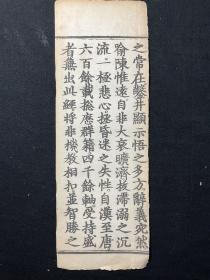 之常在鑿井顯示悟之多方辭義宛然
喻陳惟遠自非大哀曠濟拔滯溺之沉
流一極悲心拯昏迷之失性自漢至唐
六百餘載摠歷群籍四千餘軸受持盛
者無出此經將非機教相扣並智勝之